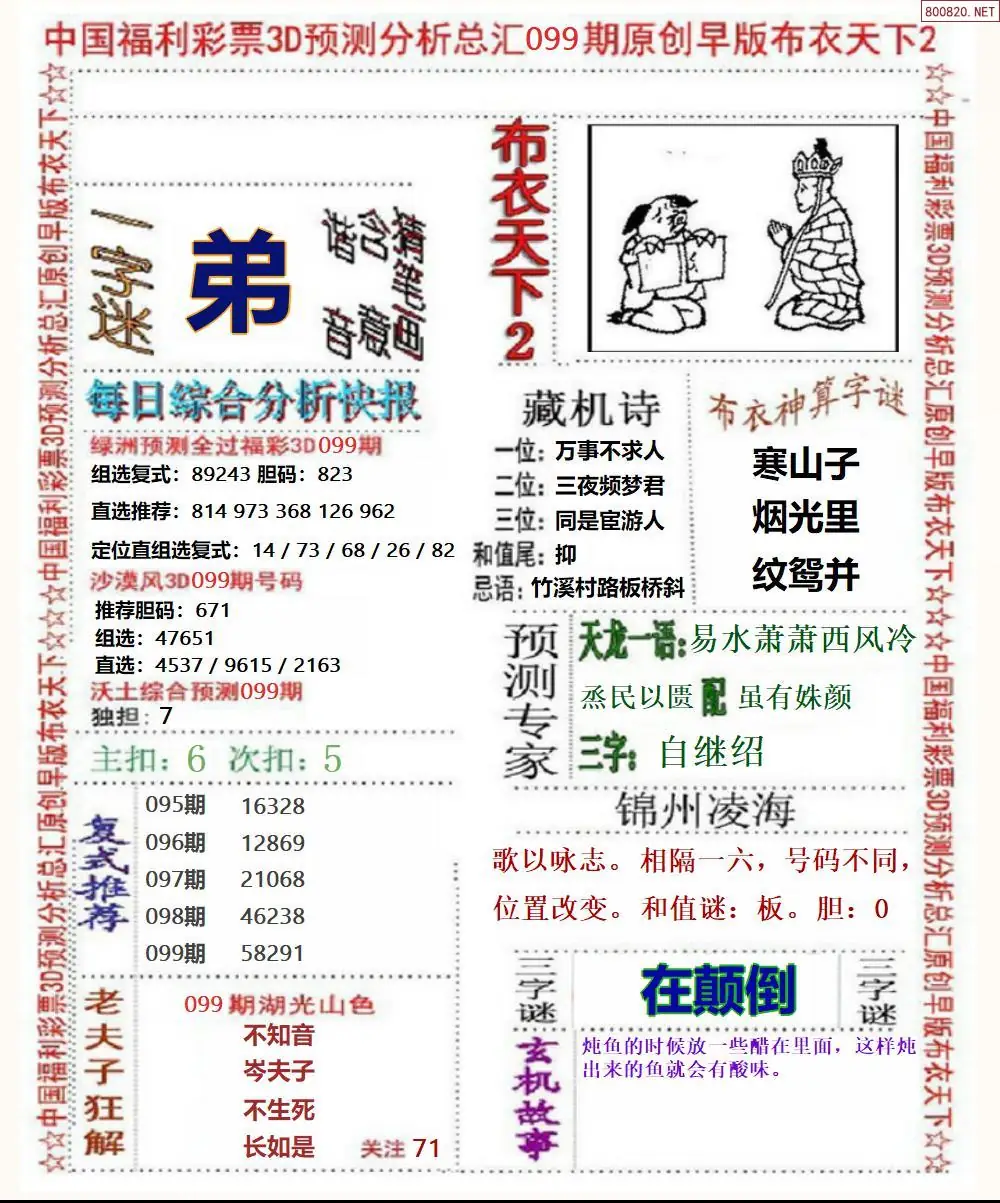 800820.NET
中国福利彩票3D预测分析总汇099期原创早版布衣天下2
☆☆中国福利彩票3D预测分析总汇原创早版布衣天下☆☆中国福利彩票3D预测分析总汇原创早版布衣天下☆☆
一字迷
弟
猜笔画
含意
谐音
布衣天下2
每日综合分析快报
绿洲预测全过福彩3D099期
组选复式：89243 胆码：823
直选推荐：814 973 368 126 962
定位直组选复式：14 / 73 / 68 / 26 / 82
沙漠风3D099期号码
推荐胆码：671
组选：47651
直选：4537 / 9615 / 2163
沃土综合预测099期
独担：7
主扣：6 次扣：5
复式推荐
095期 16328
096期 12869
097期 21068
098期 46238
099期 58291
老夫子狂解
099期湖光山色
不知音
岑夫子
不生死
长如是 关注 71
藏机诗
一位：万事不求人
二位：三夜频梦君
三位：同是宦游人
和值尾：抑
忌语：竹溪村路板桥斜
布衣神算字谜
寒山子
烟光里
纹鸳并
预测专家
天龙一语:易水萧萧西风冷
烝民以匮 配 虽有姝颜
三字：自继绍
锦州凌海
歌以咏志。相隔一六，号码不同，
位置改变。和值谜：板。胆：0
三字谜
在颠倒
三字谜
玄机故事
炖鱼的时候放一些醋在里面，这样炖
出来的鱼就会有酸味。
☆☆中国福利彩票3D预测分析总汇原创早版布衣天下☆☆中国福利彩票3D预测分析总汇原创早版布衣天下☆☆